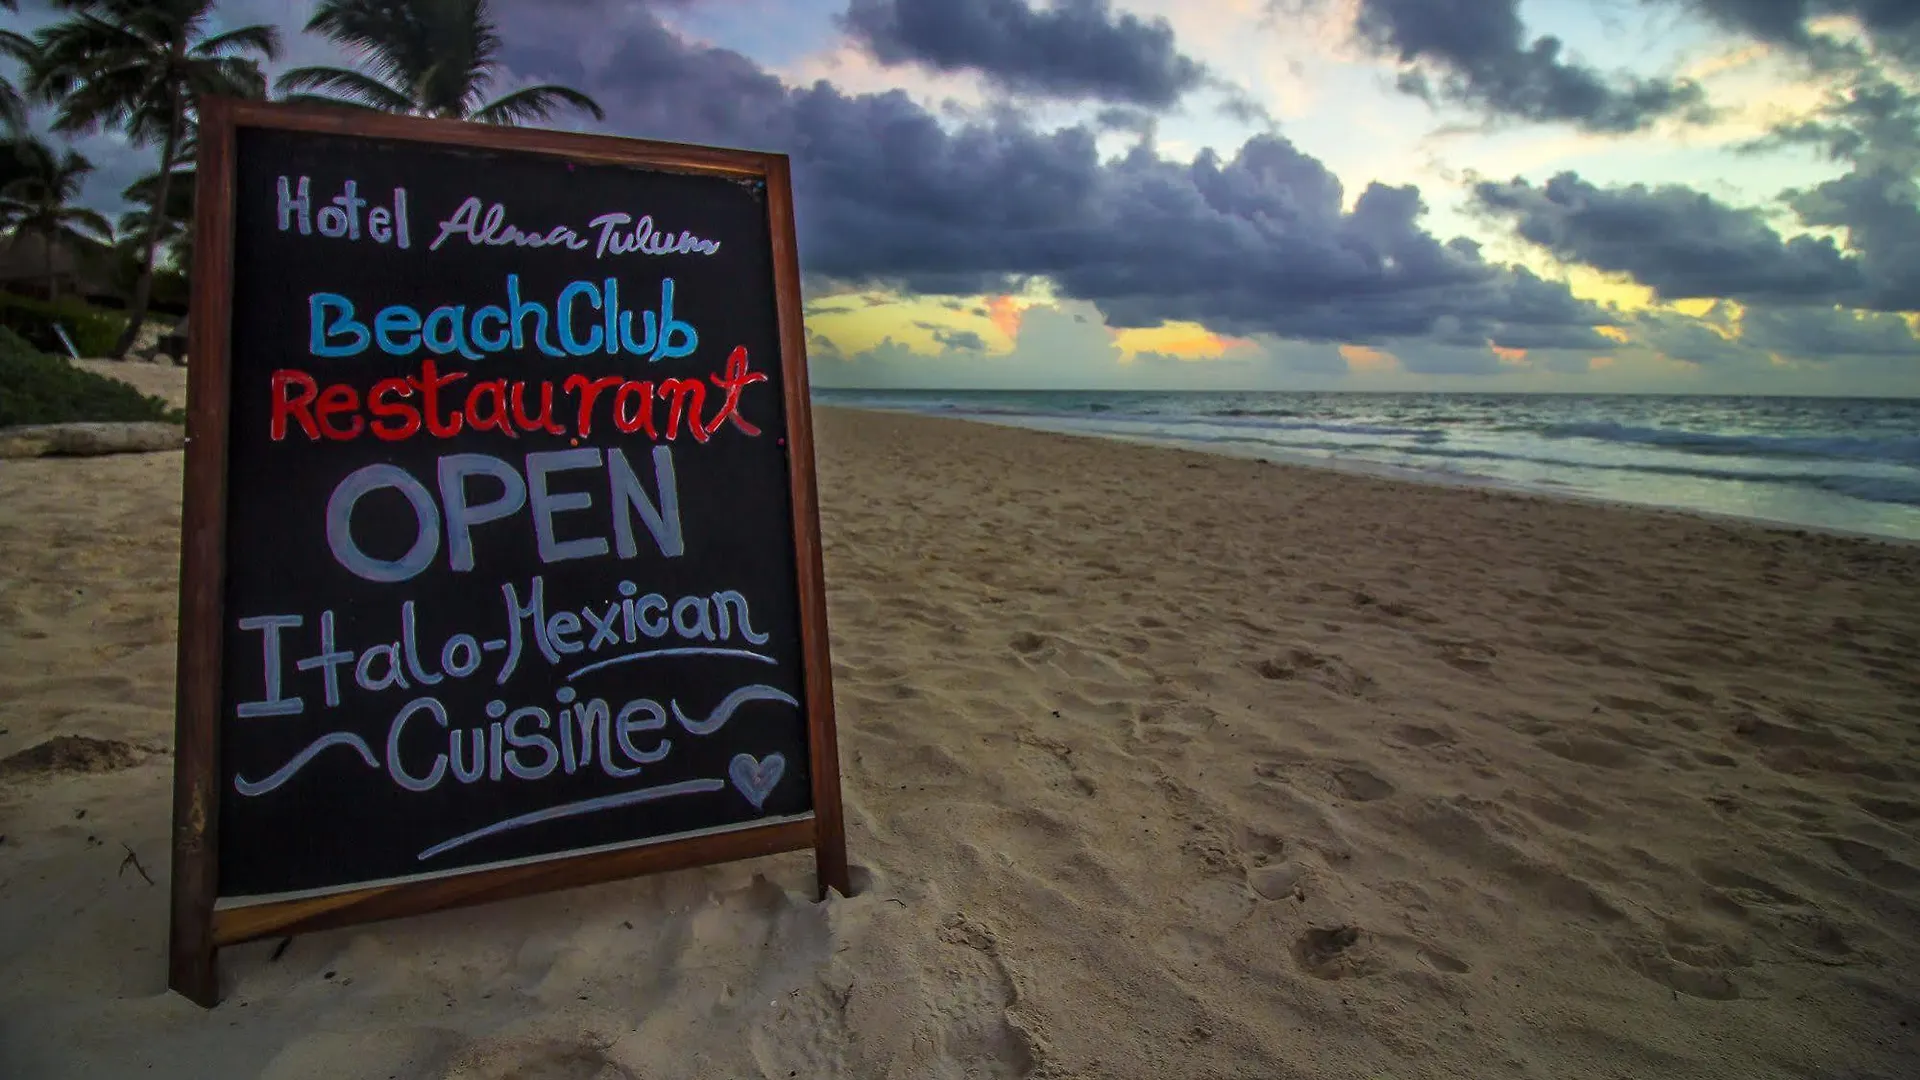 Hotel Alma Tulum
BeachClub
Restaurant
OPEN
Italo-Mexican
Cuisine